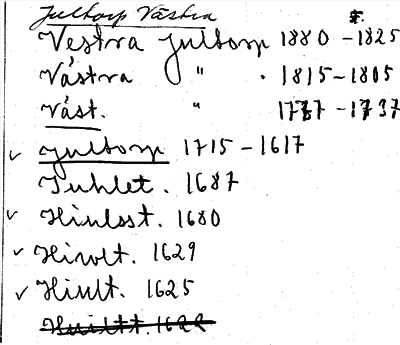 Jultorp Västra
Vestra Jultorp 1880 - 1825
Västra " . 1815 - 1805
Väst. " 1777 - 1737
✓ Jultorp 1715 - 1617
Juhlet. 1687
✓ Hiulsst. 1680
✓ Hivolt. 1629
✓ Hiult. 1625